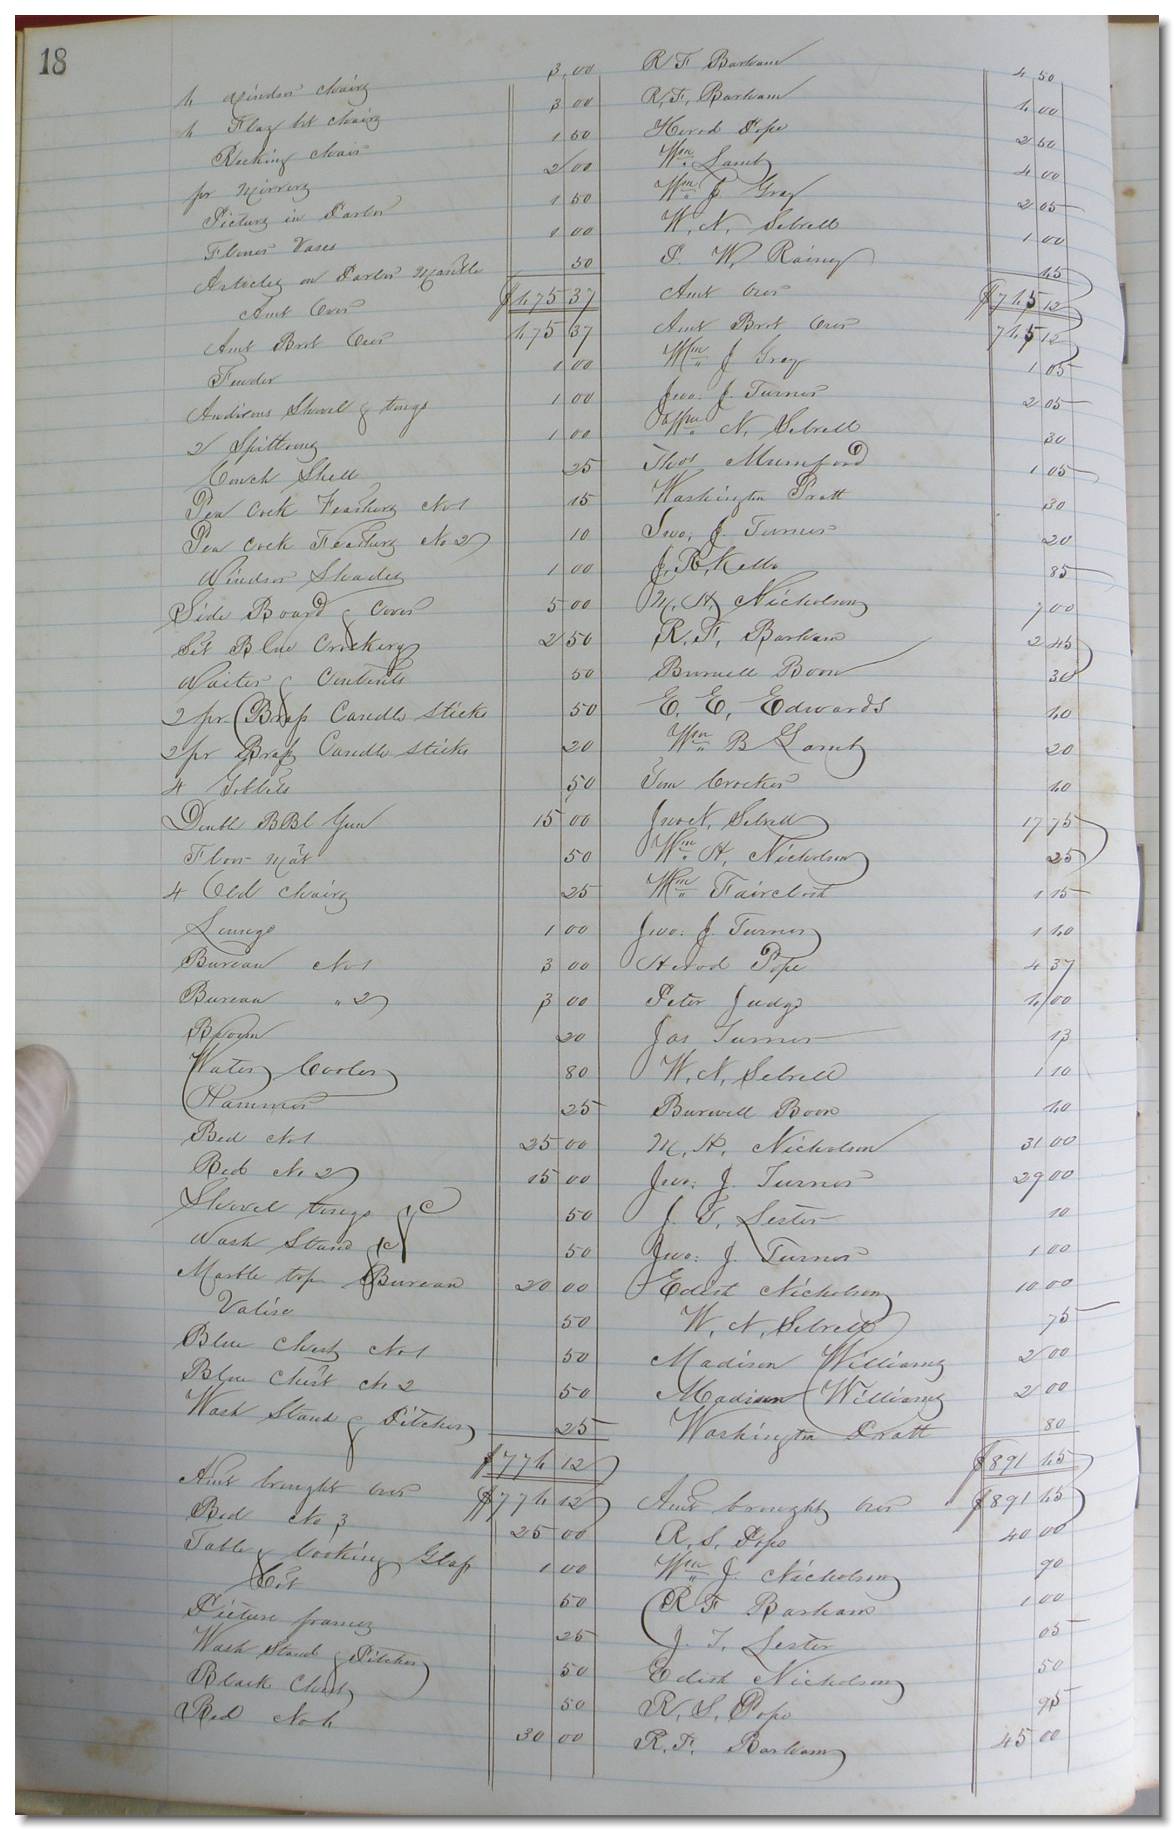 18
4 Windsor chairs 3 00 R F Barham 4 50
4 Flag bot chairs 3 00 R. F. Barham 4 00
Rocking chair 1 50 Herod Pope 2 50
pr Mirrors 2 00 Wm Lamb 4 00
Picturs in Parlor 1 50 Wm J Gray 2 05
Flower Vases 1 00 W. N. Sebrell 1 00
Articles on Parlor Mantle 50 P. W. Rainey 45
Amt Over $475 37 Amt Over $745 12
Amt Brot Over 475 37 Amt Brot Over 745 12
Fender 1 00 Wm J Gray 1 05
Andirons Shovel & tongs 1 00 Jno. J. Turner 2 05
2 Spittoons 1 00 Wm N. Sebrell 30
Conch Shell 25 Thos Mumford 1 05
Pea Cock Feathers No 1 15 Washington Pratt 30
Pea Cock Feathers No 2 10 Jno. J. Turner 20
Windsor Shades 1 00 J. R. Kello 85
Side Board & Cover 5 00 M. H. Nicholson 7 00
Set Blue Crockery 2 50 R. F. Barham 2 45
Waiter & Contents 50 Burwell Boon 30
2 pr Brass Candle Sticks 50 E. E. Edwards 40
2 pr Brass Candle Sticks 20 Wm B Lamb 20
4 Goblets 50 Tom Crocker 40
Double BBl Gun 15 00 Jno N. Sebrell 17 75
Floor Mat 50 Wm H. Nicholson 25
4 Old chairs 25 Wm Faircloth 1 15
Lounge 1 00 Jno. J. Turner 1 40
Bureau No 1 3 00 Herod Pope 4 37
Bureau " 2 3 00 Peter Judge 4 00
Broom 20 Jas Turner 13
Water Cooler 80 W. N. Sebrell 1 10
Hammer 25 Burwell Boon 40
Bed No 1 25 00 M. H. Nicholson 31 00
Bed No 2 15 00 Jno. J. Turner 29 00
Shovel tongs &c 50 J. T. Lester 10
Wash Stand &c 50 Jno. J. Turner 1 00
Marble top Bureau 20 00 Edist Nicholson 10 00
Valise 50 W. N. Sebrell 75
Blue Chest No 1 50 Madison Williams 2 00
Blue Chest No 2 50 Madison Williams 2 00
Wash Stand & Pitcher 25 Washington Pratt 80
$774 12 $891 45
Amt brought over $774 12 Amt brought over $891 45
Bed No 3 25 00 R. S. Pope 40 00
Table & Looking Glass 1 00 Wm J. Nicholson 90
Cot 50 R F Barham 1 00
Picture frames 25 J. T. Lester 05
Wash Stand & Pitcher 50 Edist Nicholson 50
Black Chest 50 R. S. Pope 95
Bed No 4 30 00 R. F. Barham 45 00